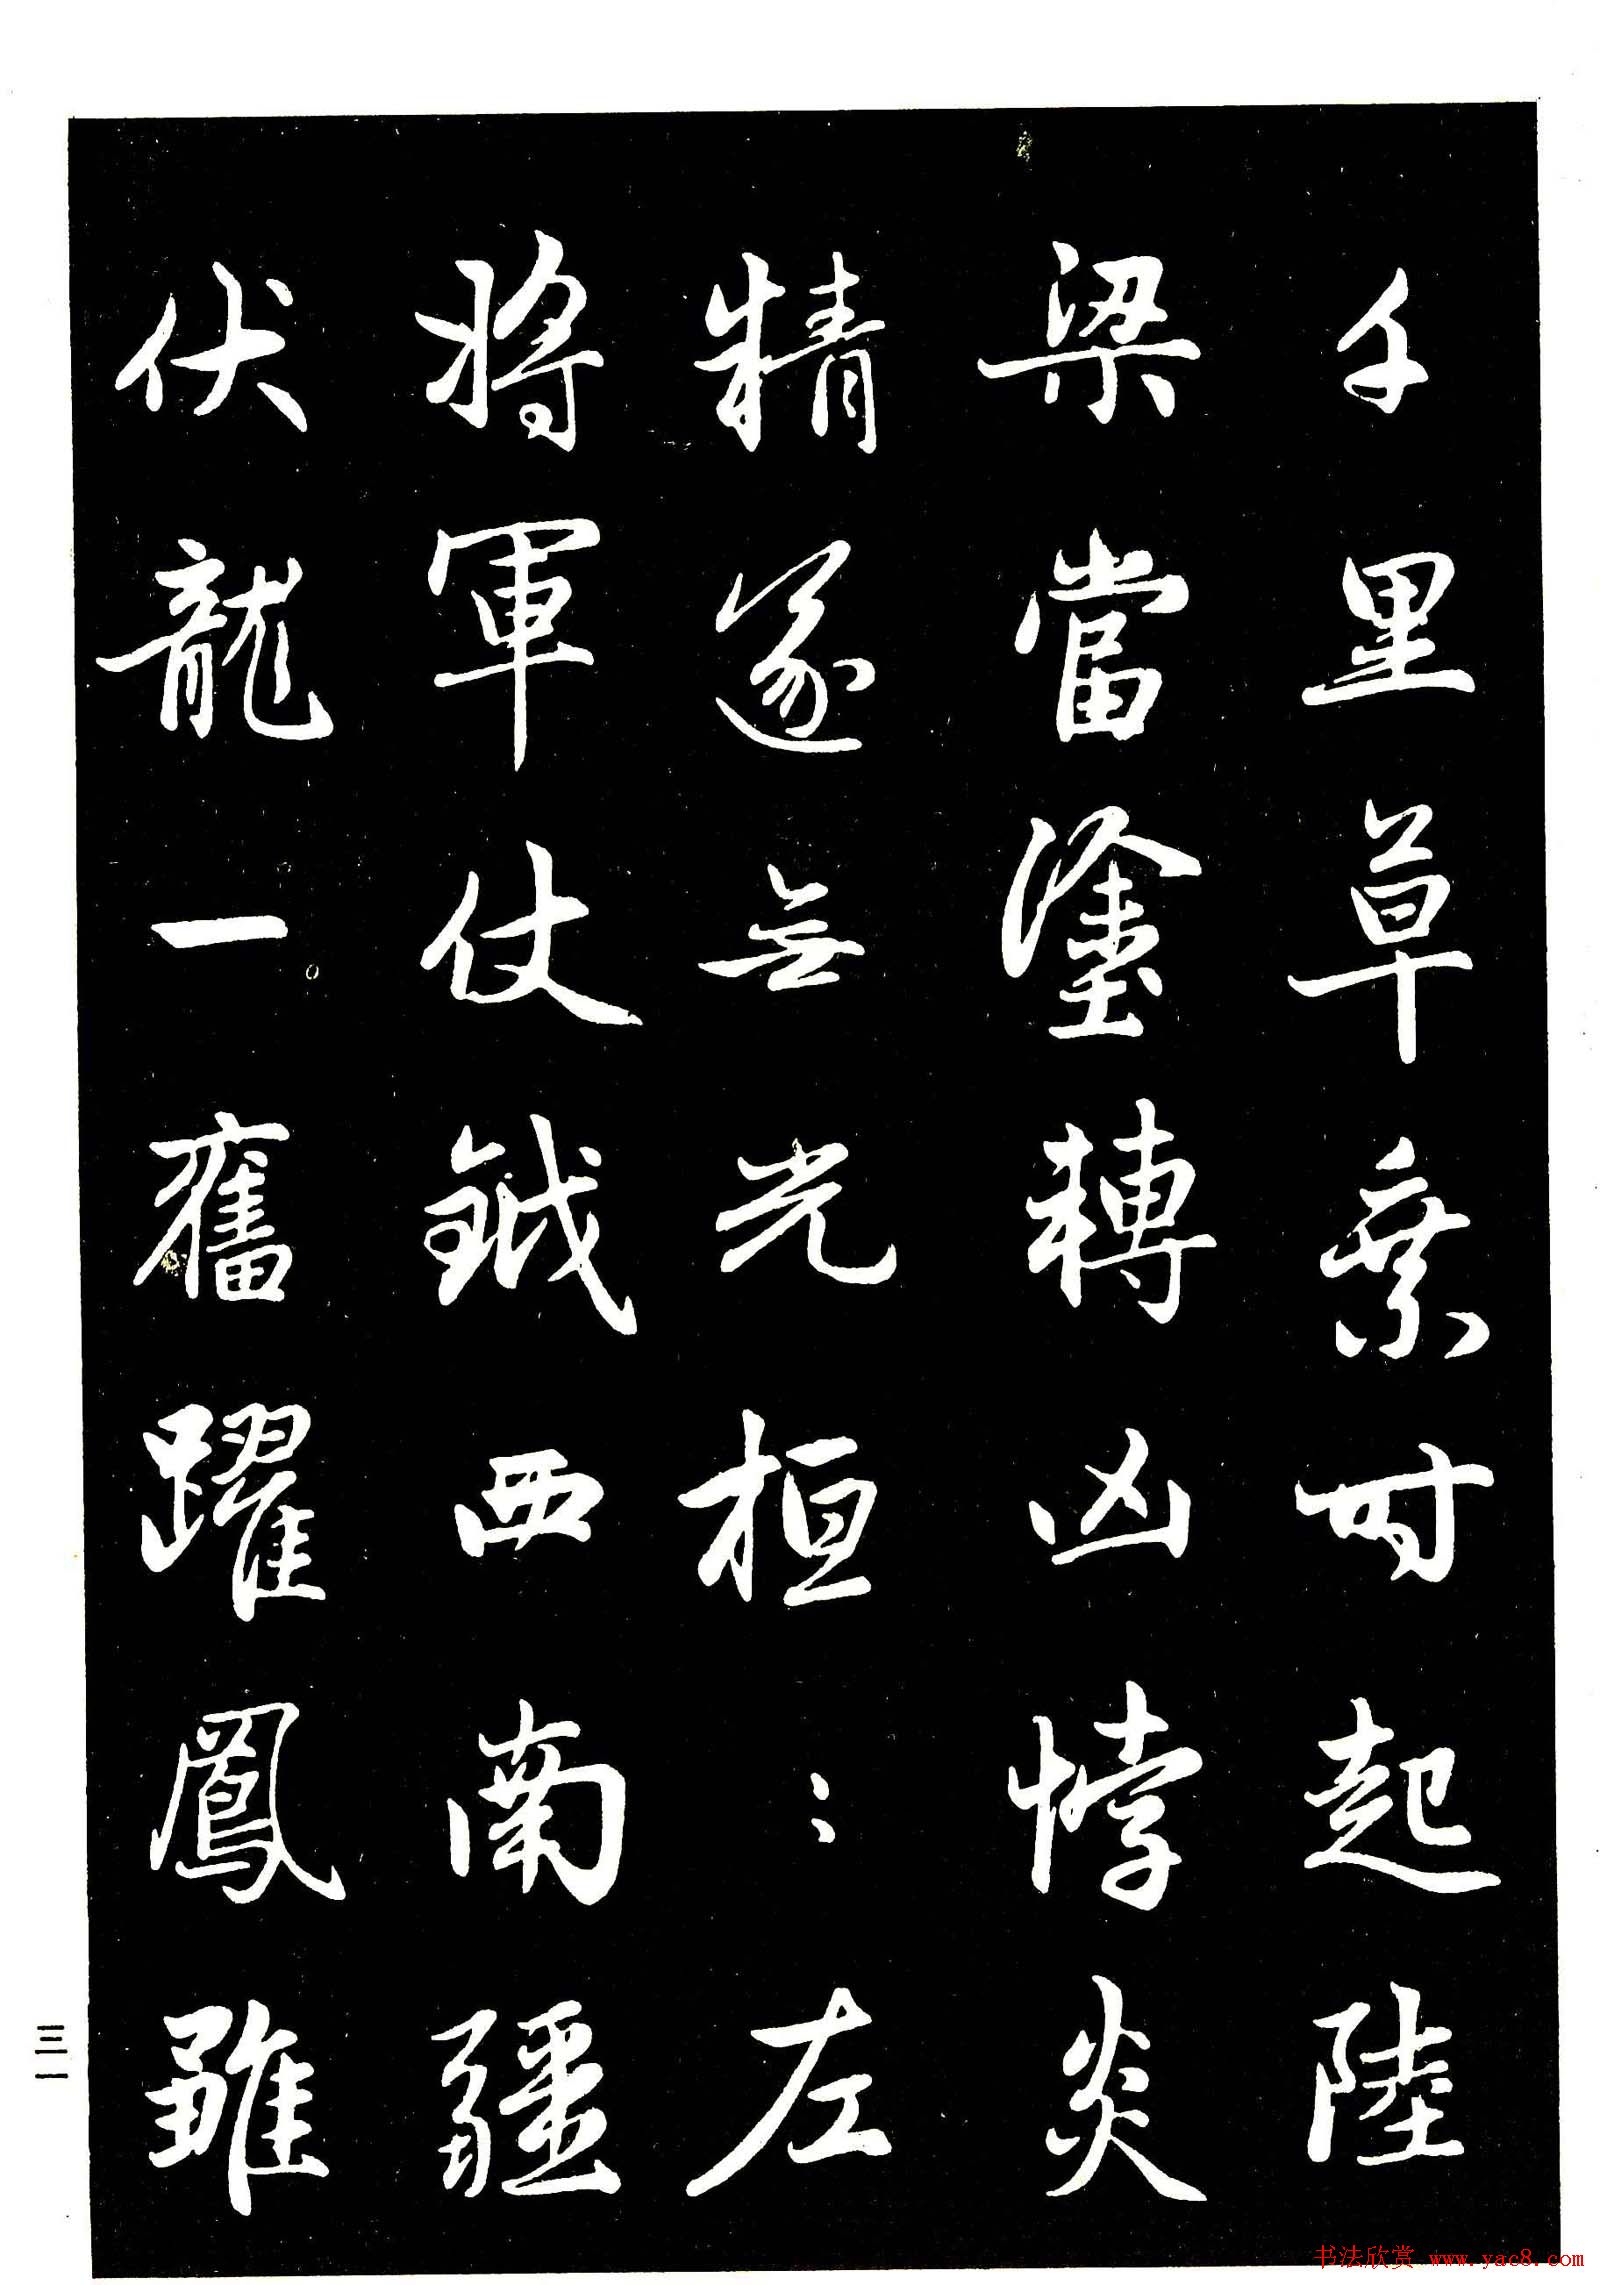 千里草乗时起陸
梁當塗轉凶悖炎
精遂無光桓〻左
將軍仗鉞西南疆
伏龍一奮躍鳳雖
三一
书法欣赏 www.yac8.com